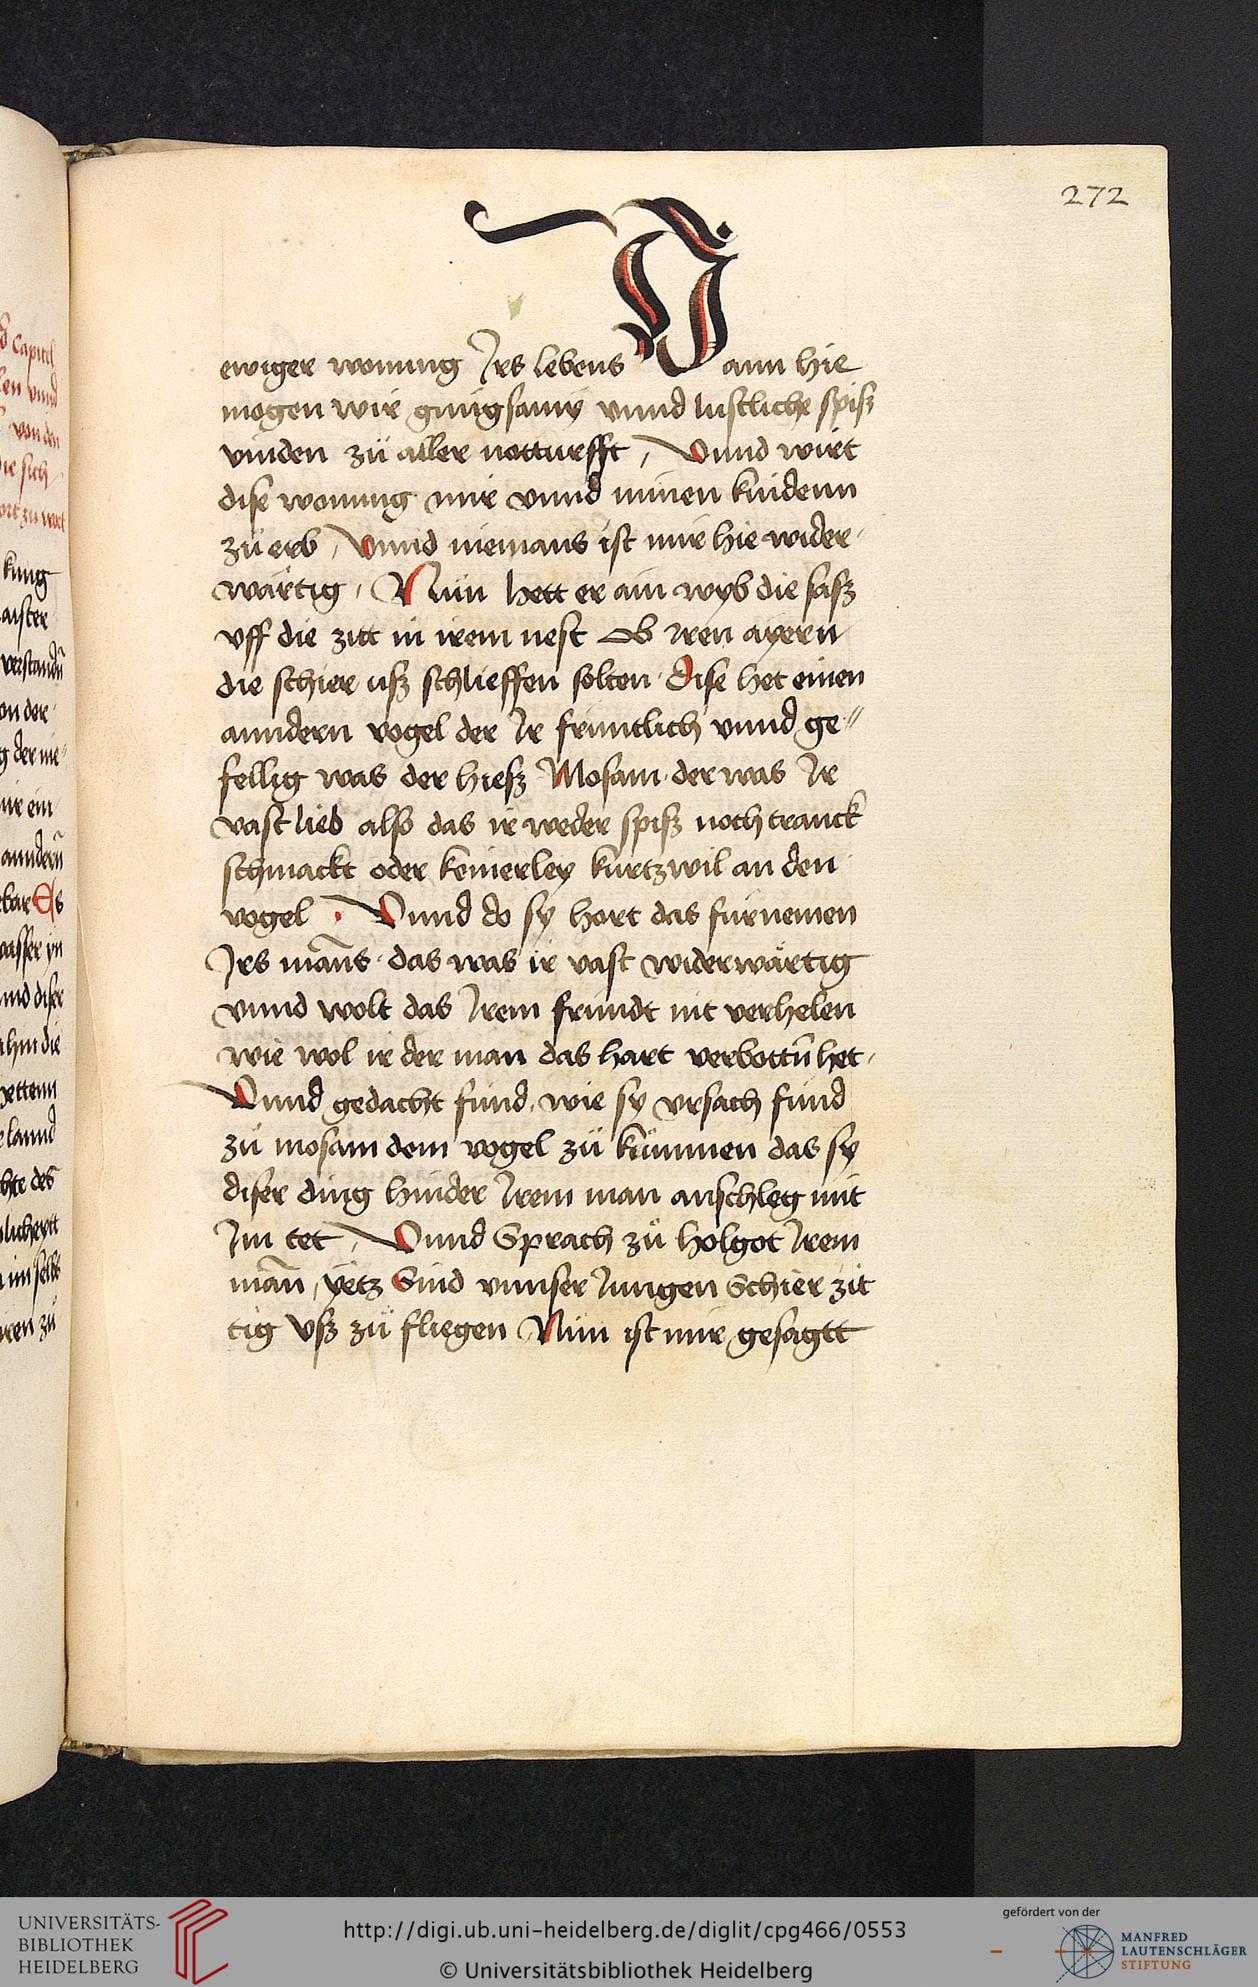 272
ewiger wonung Irs lebens Dann hie
mogen wir gnu̍gsamy vnnd lustliche spiß
vinden zü aller notturfft / Vnnd wirt
dise wonung mir vnnd minen kindenn
zü erb / Vnnd niemans ist mir hie wider-
wärtig / Nün hett er ain wyb die saß
vff die zitt in irem nest Ob iren ayern
die schier uß schlieffen solten · dise het einen
anndern vogel der Ir früntlich vnnd ge-
fellig was der hieß Mosam · der was Ir
vast lieb also das ir weder spiß noch tranck
schmackt oder keinerley kurtzwil an den
vogel · Vnnd do sy hort das furnemen
Irs mans̄ · das was ir vast widerwärtig
vnnd wolt das Irem fründt nit verhelen
wie wol ir der man das hart verbottn̄ het ·
Vnnd gedacht fund · wie sy vrsach fund
zü mosam dem vogel zü kummen das sy
diser ding hinder Irem man anschleg mit
Im tet / Vnnd Sprach zů holgot Irem
man̄ / yetz Sind vnnser Iungen Schier zit
tig Vß zü fliegen Nün ist mir gesagtt
Capitel
von den
die sich
kung
aister
on der
der nie
mir ein
Es
vnnd diser
lannd
im selbs
UNIVERSITÄTS-
BIBLIOTHEK
HEIDELBERG
http://digi.ub.uni-heidelberg.de/diglit/cpg466/0553
© Universitätsbibliothek Heidelberg
gefördert von der
MANFRED
LAUTENSCHLÄGER
STIFTUNG